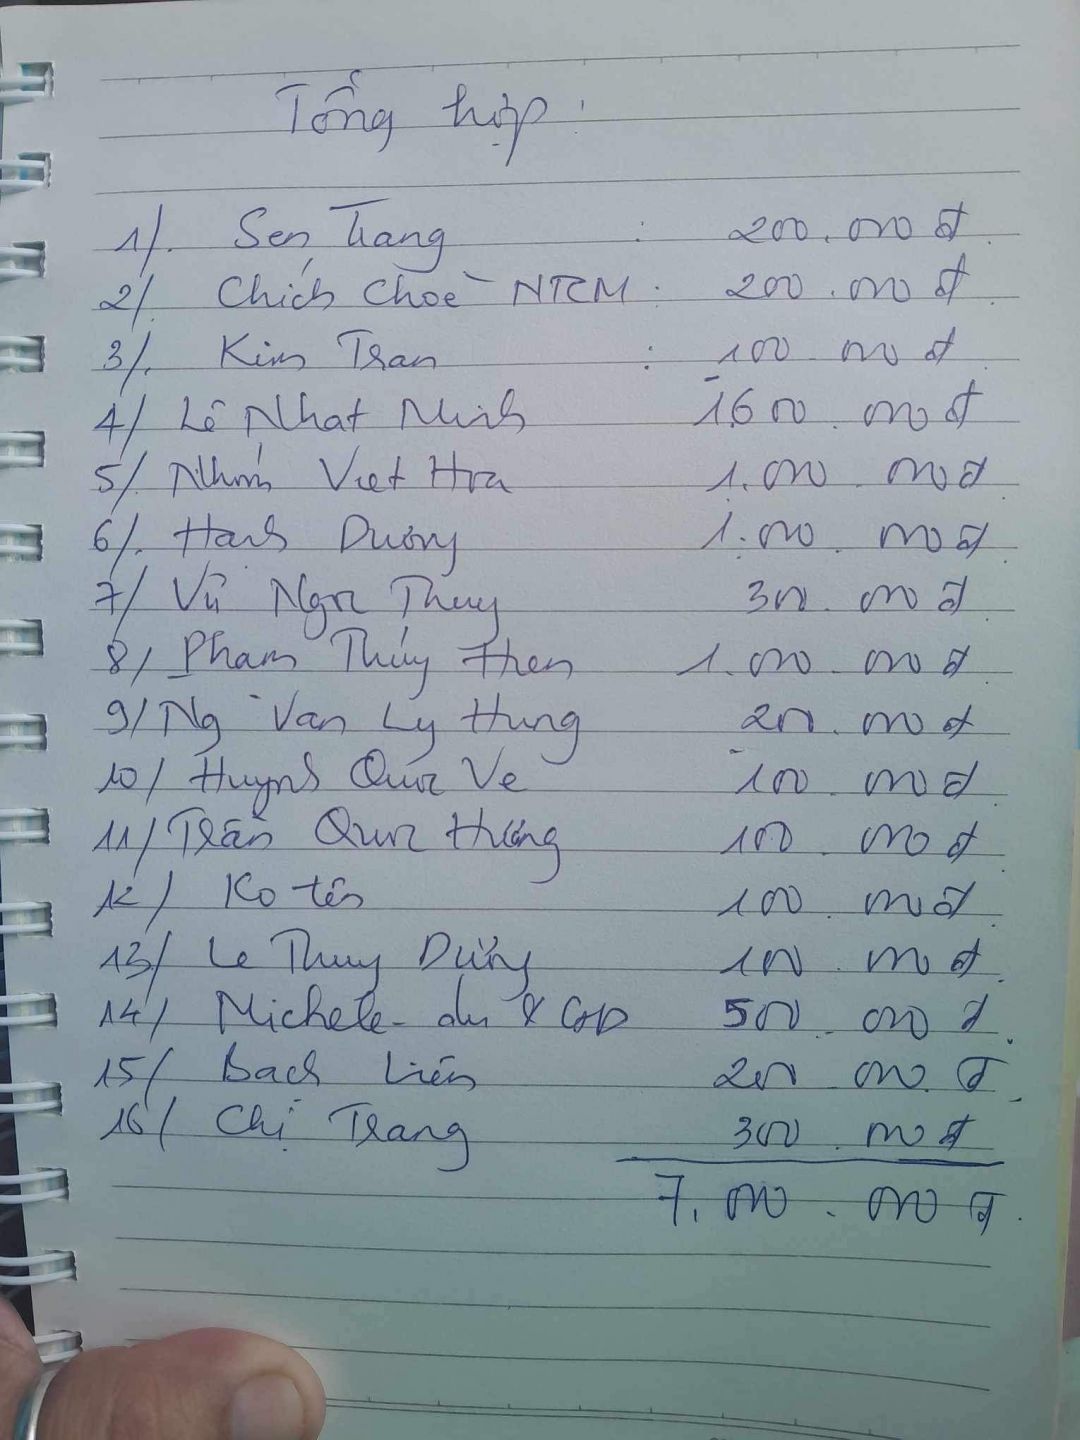 Tổng hợp:
1/. Sen Trang : 200.000 đ
2/. Chích Choè NTCM : 200.000 đ
3/. Kim Tran : 100.000 đ
4/ Lê Nhat Minh 1600.000 đ
5/ Nhóm Viet Hoa 1.000.000 đ
6/. Hanh Dương 1.000.000 đ
7/ Vũ Ngoc Thuy 300.000 đ
8/ Pham Thúy Hien 1.000.000 đ
9/ Ng Van Ly Hung 200.000 đ
10/ Huynh Quoc Ve 100.000 đ
11/ Trần Quoc Hương 100.000 đ
12/ Ko tên 100.000 đ
13/ Le Thuy Dường 100.000 đ
14/ Michele 500.000 đ
15/ Bach Liên 200.000 đ
16/ Chị Trang 300.000 đ
7.000.000 đ